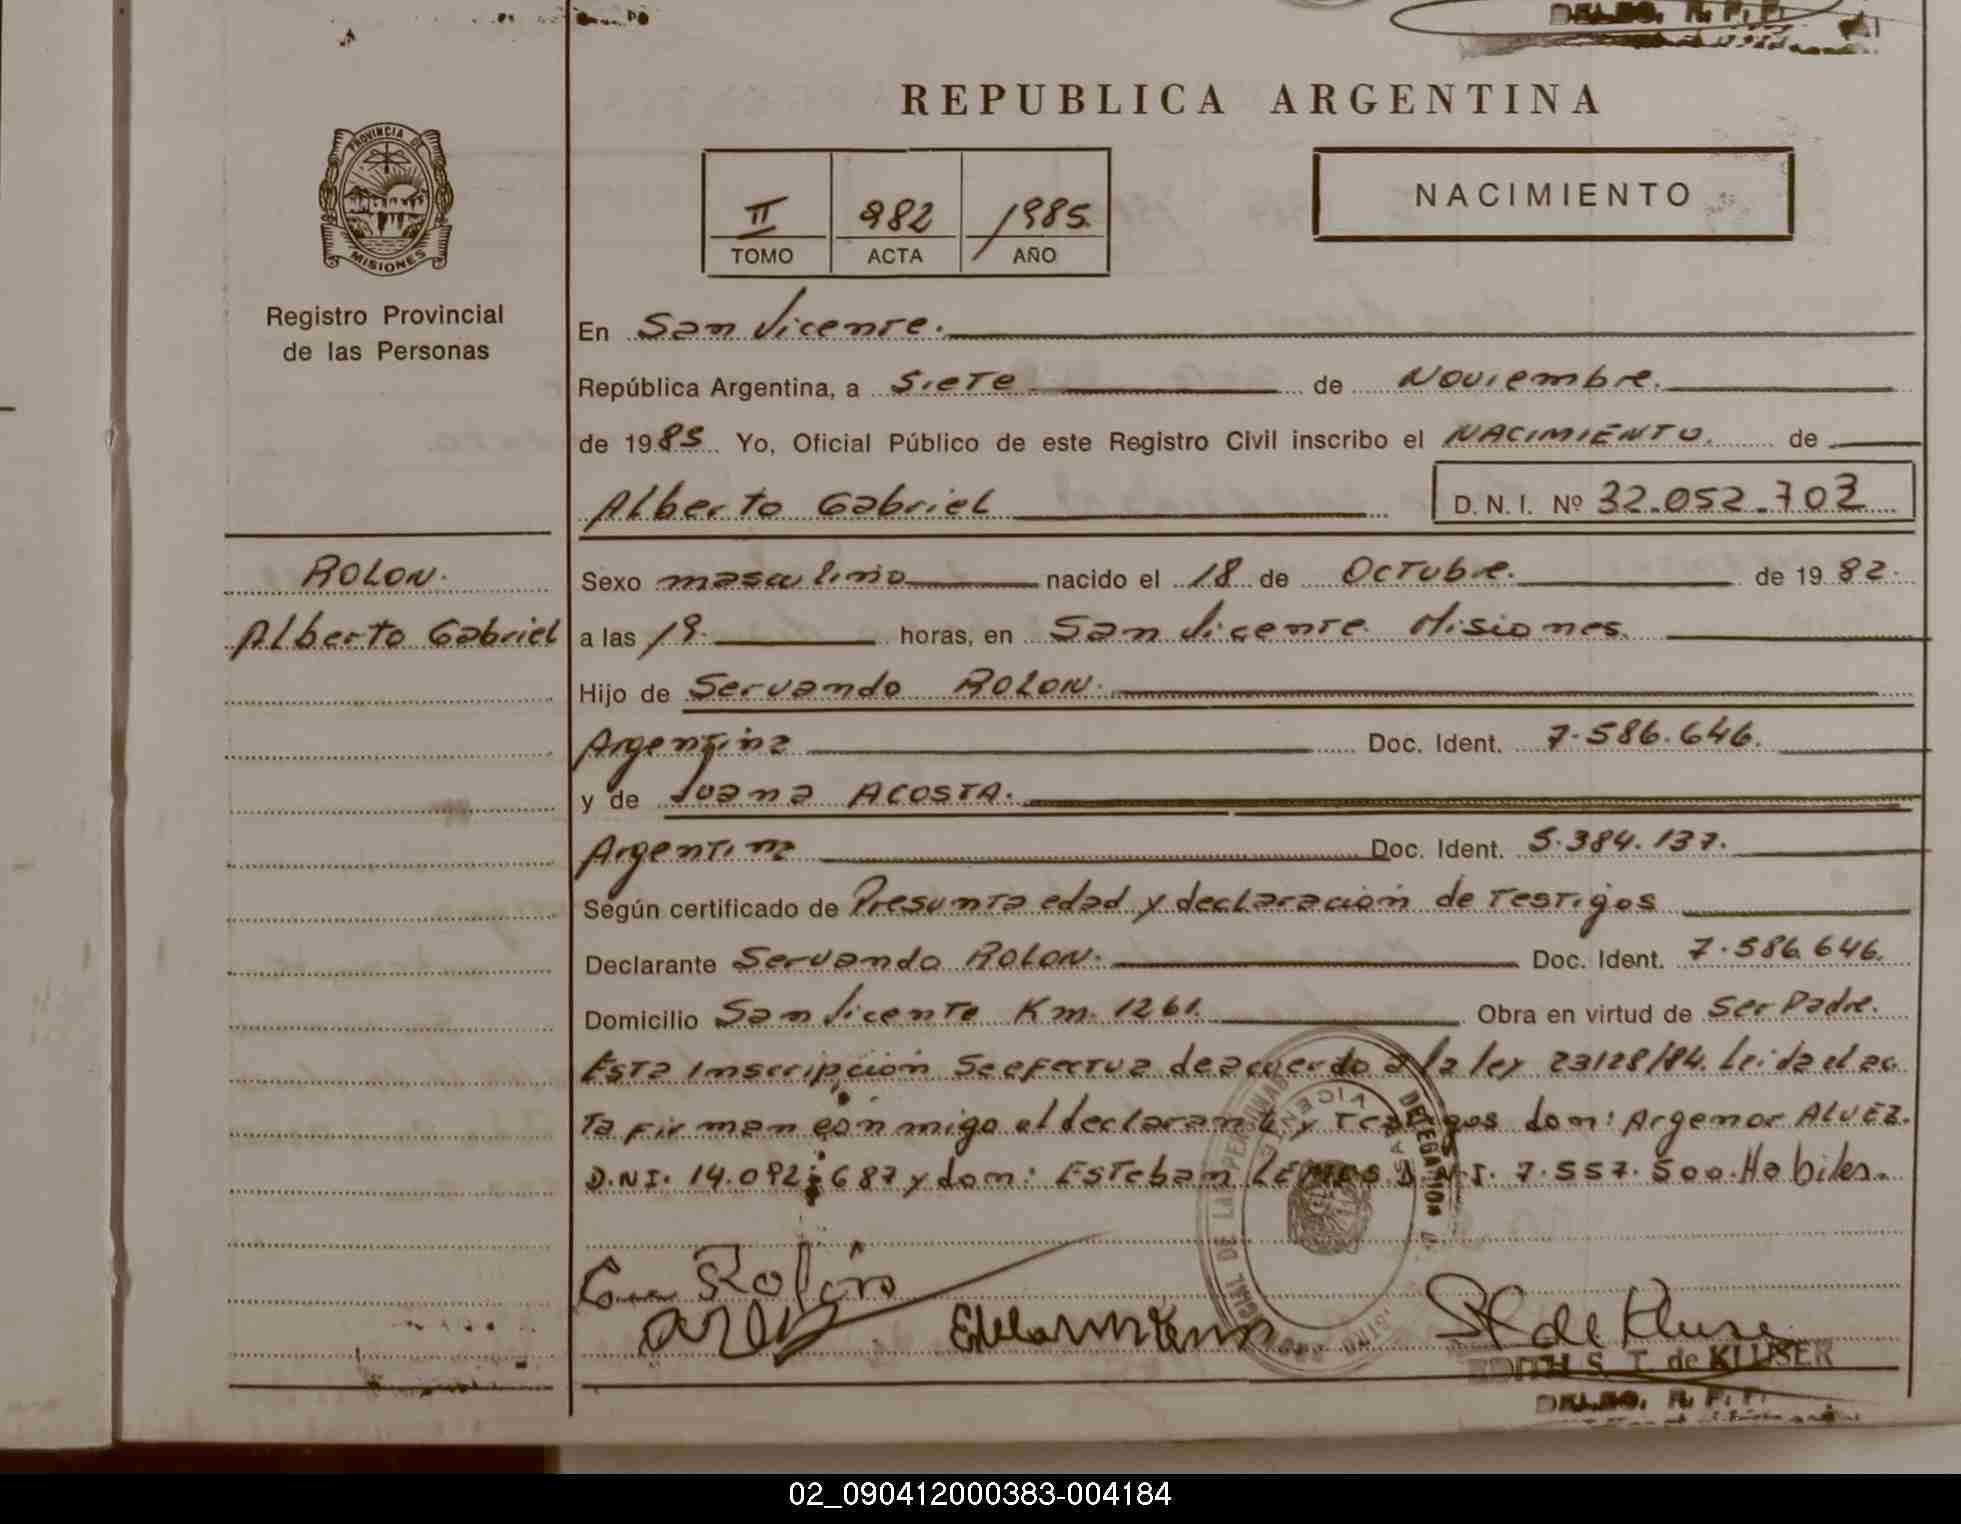 DELEG. R. P. P.
REPUBLICA ARGENTINA
PROVINCIA DE
MISIONES
Registro Provincial
de las Personas
II 982 1985
TOMO ACTA AÑO
NACIMIENTO
En San Vicente.
República Argentina, a Siete de Noviembre.
de 1985 Yo, Oficial Público de este Registro Civil inscribo el NACIMIENTO. de
Alberto Gabriel D. N. I. Nº 32.052.703
ROLON.
Alberto Gabriel
Sexo masculino nacido el 18 de Octubre. de 1982.
a las 19. horas, en San Vicente Misiones.
Hijo de Servando ROLON.
Argentina Doc. Ident. 7.586.646.
y de Juana ACOSTA.
Argentina Doc. Ident. 5.384.137.
Según certificado de Presunta edad y declaración de Testigos
Declarante Servando ROLON. Doc. Ident. 7.586.646.
Domicilio San Vicente Km. 1261. Obra en virtud de Ser Padre.
Esta Inscripción Se efectua de acuerdo a la ley 23128/84. Leida el ac
ta firman con migo el declarante y Testigos don: Argemor ALVEZ.
D.N.I. 14.092.687 y don: Esteban LEMOS D.N.I. 7.557.500. Habiles.
Rolón
EDITH S. T. de KLUSER
DELEG. R. P. P.
02_090412000383-004184